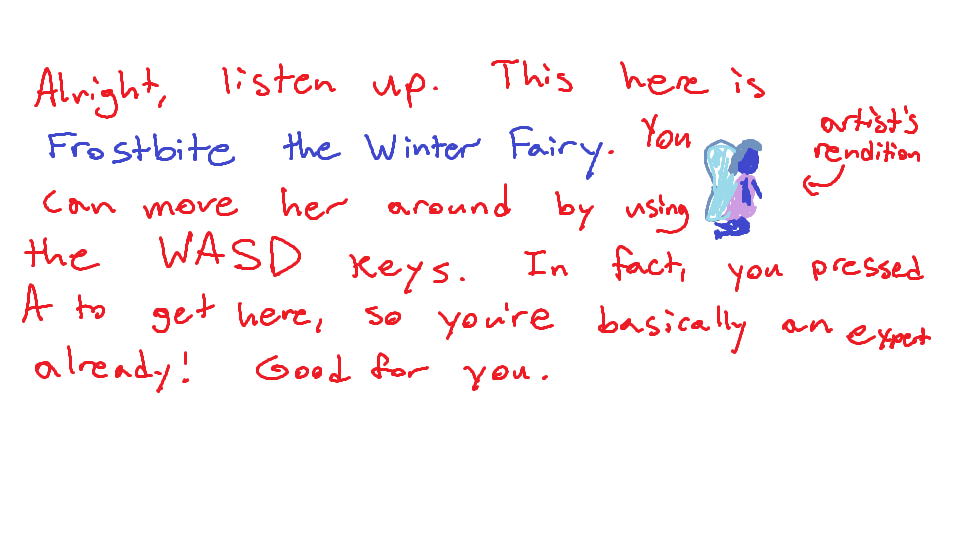 Alright, listen up. This here is
Frostbite the Winter Fairy. You
artist's
rendition
can move her around by using
the WASD keys. In fact, you pressed
A to get here, so you're basically an expert
already! Good for you.